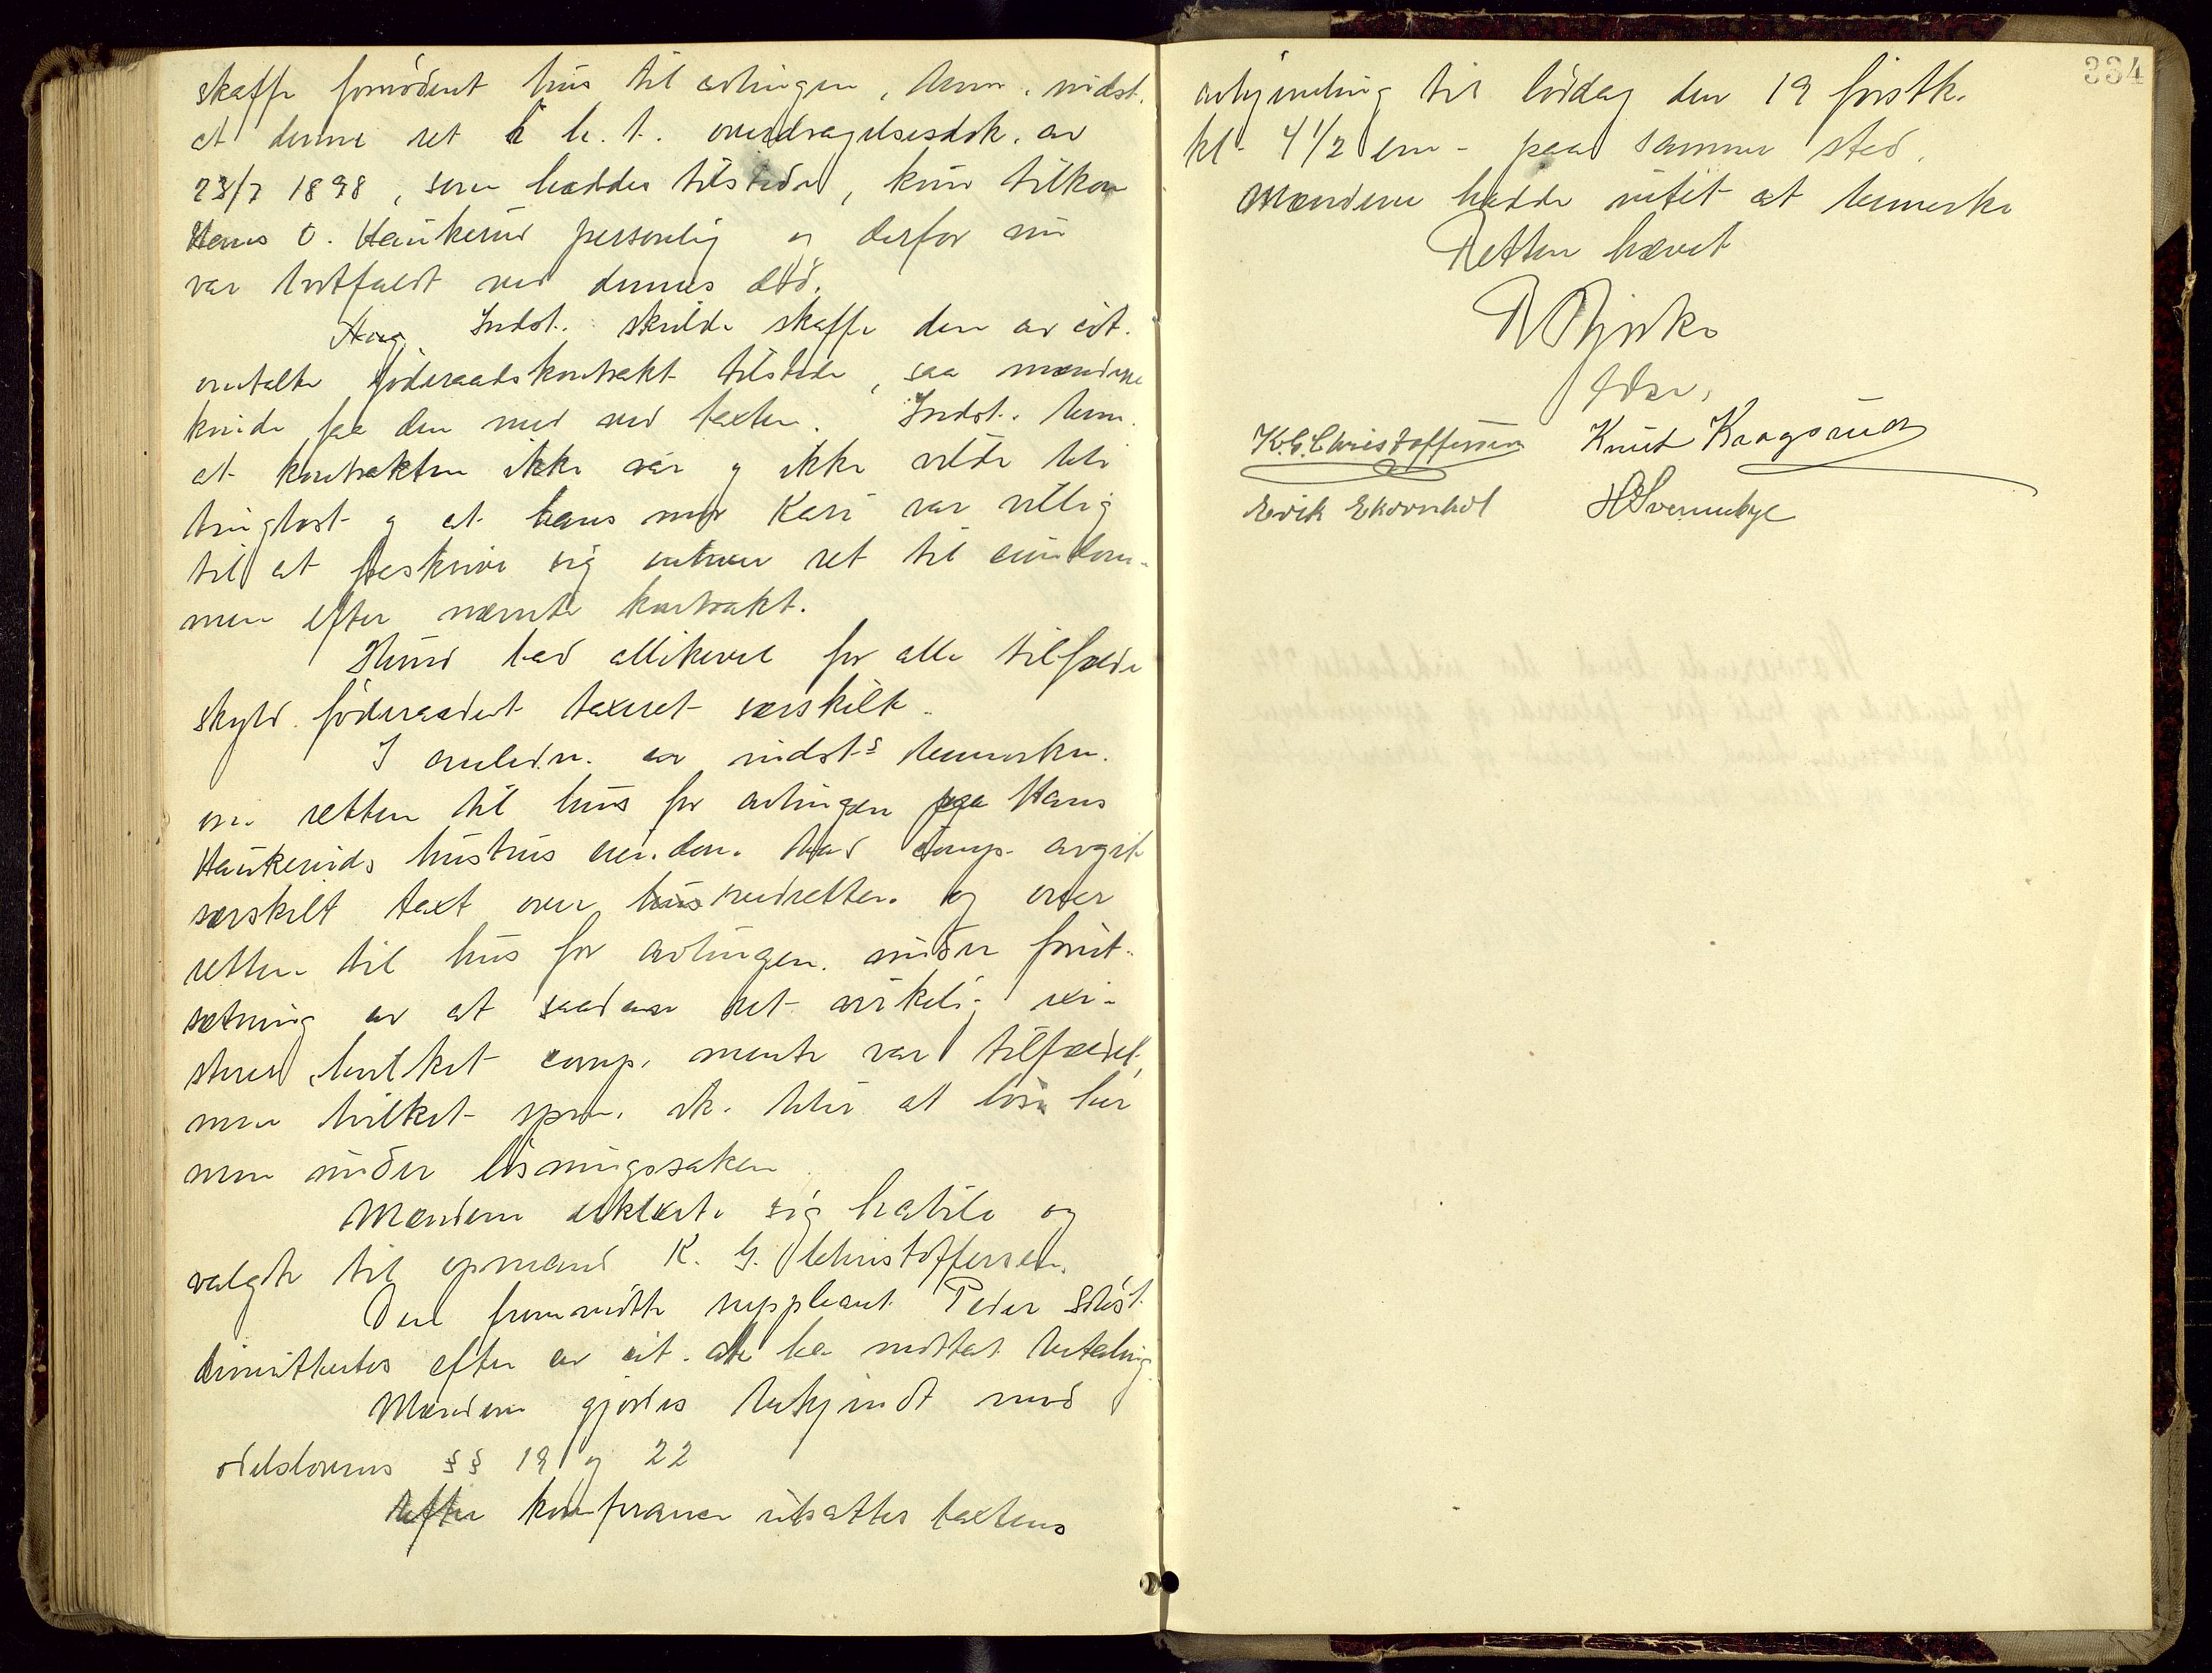 skaffe fornødent hus til avlingen, bem. indst.
at denne ret i h. t. overdragelsesdok. av
23/7 1898, som haddes tilstede, kun tilkom
Hans O. Haukerud personlig og derfor nu
var bortfaldt ved dennes død.
Indst. skulde skaffe den av cit.
omtalte føderaadskontrakt tilstede, saa mændene
kunde faa den med ved taxten. Indst. bem.
at kontrakten ikke var og ikke vilde bli
tinglæst og at hans mor Kari var villig
til at fraskrive sig enhver ret til eiendom-
men efter nævnte kontrakt.
Hund bad allikevel for alle tilfælde
skyld føderaadet taxeret særskilt.
I anledn. av indst.s bemerkn.
om retten til hus for avlingen paa Hans
Haukeruds hustrus eiendom bad comp. avgit
særskilt taxt over husredretten og over
retten til hus for avlingen under forut-
sætning av at saadan ret virkelig exi-
sterer, hvilket comp. mente var tilfældet,
men hvilket spm. vil bli at løse her-
men under løsningssaken
Mændene erklærte sig habile og
valgte til opmand K. G. Christoffersen.
Den fremmøtte suppleant Peder
dimitteres efter av cit. at ha mottat betaling.
Mændene gjordes bekjendt med
odelslovens §§ 19 og 22
Efter konferance utsattes taxtens
avhjemling til lørdag den 19 førstk.
kl. 4 1/2 em. paa samme sted.
Mændene hadde intet at bemerke
Retten hævet
K. G. Christoffersen Knut Kragsrud
Erik Ekornhol
334